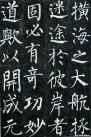 横海之大壑拯
迷途於彼岸者
固必有奇功妙
道歟以開成元